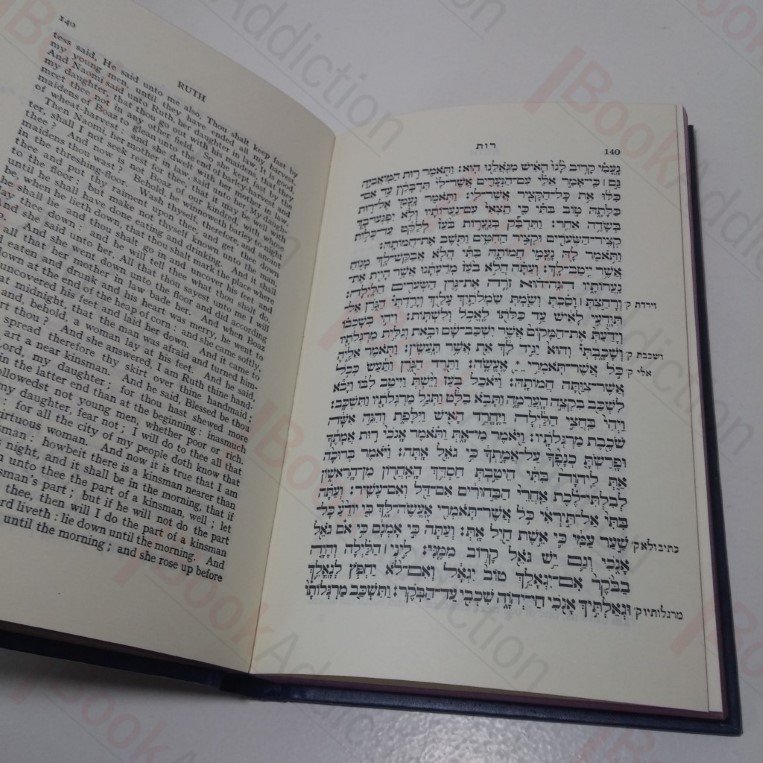 140
RUTH
tess said, He said unto me also, Thou shalt keep fast by
my young men, until they have ended all my harvest.
And Naomi said unto Ruth her daughter in law, It is good,
my daughter, that thou go out with his maidens, that they
meet thee not in any other field. So she kept fast by the
maidens of Boaz to glean unto the end of barley-harvest and
of wheat-harvest; and dwelt with her mother in law.
Then Naomi her mother in law said unto her, My daughter,
shall I not seek rest for thee, that it may be well with
thee? And now is not Boaz of our kindred, with whose
maidens thou wast? Behold, he winnoweth barley to night
in the threshing-floor. Wash thyself therefore, and anoint
thee, and put thy raiment upon thee, and get thee down
to the floor: but make not thyself known unto the man,
be, when he lieth down, that thou shalt mark the place where
he lie down: and he will tell thee what thou shalt do.
And she said unto her, All that thou sayest unto me I will
do. And she went down unto the floor and did according
to all that her mother in law bade her. And when Boaz
had eaten and drunk and his heart was merry, he went to
lie down at the end of the heap of corn: and she came softly,
uncovered his feet and laid her down. And it came to
at midnight, that the man was afraid and turned him-
and, behold, a woman lay at his feet. And he said,
art thou? And she answered, I am Ruth thine hand-
spread therefore thy skirt over thine handmaid;
art a near kinsman. And he said, Blessed be thou
ord, my daughter; for thou hast shewed more
in the latter end than at the beginning: inasmuch
followedst not young men, whether poor or rich.
my daughter, fear not; I will do to thee all that
: for all the city of my people doth know that
irtuous woman. And now it is true that I am
nsman: howbeit there is a kinsman nearer than
night, and it shall be in the morning, that if
n unto thee the part of a kinsman, well; let
nsman's part; but if he will not do the part
thee, then will I do the part of a kinsman
ord liveth: lie down until the morning. And
until the morning; and she rose up before
רות
140
נָעֳמִי קָרוֹב לָנוּ הָאִישׁ מִגֹּאֲלֵנוּ הוּא׃ וַתֹּאמֶר רוּת הַמּוֹאֲבִיָּה
גַּם ׀ כִּי־אָמַר אֵלַי עִם־הַנְּעָרִים אֲשֶׁר־לִי תִּדְבָּקִין עַד אִם־
כִּלּוּ אֵת כָּל־הַקָּצִיר אֲשֶׁר־לִי׃ וַתֹּאמֶר נָעֳמִי אֶל־רוּת
כַּלָּתָהּ טוֹב בִּתִּי כִּי תֵצְאִי עִם־נַעֲרוֹתָיו וְלֹא יִפְגְּעוּ־בָךְ
בְּשָׂדֶה אַחֵר׃ וַתִּדְבַּק בְּנַעֲרוֹת בֹּעַז לְלַקֵּט עַד־כְּלוֹת
קְצִיר־הַשְּׂעֹרִים וּקְצִיר הַחִטִּים וַתֵּשֶׁב אֶת־חֲמוֹתָהּ׃
וַתֹּאמֶר לָהּ נָעֳמִי חֲמוֹתָהּ בִּתִּי הֲלֹא אֲבַקֶּשׁ־לָךְ מָנוֹחַ
אֲשֶׁר יִיטַב־לָךְ׃ וְעַתָּה הֲלֹא בֹעַז מֹדַעְתָּנוּ אֲשֶׁר הָיִית אֶת־
נַעֲרוֹתָיו הִנֵּה־הוּא זֹרֶה אֶת־גֹּרֶן הַשְּׂעֹרִים הַלָּיְלָה׃
וְרָחַצְתְּ ׀ וָסַכְתְּ וְשַׂמְתְּ שִׂמְלֹתַיִךְ עָלַיִךְ וְיָרַדְתְּי הַגֹּרֶן אַל־
תִּוָּדְעִי לָאִישׁ עַד כַּלֹּתוֹ לֶאֱכֹל וְלִשְׁתּוֹת׃ וִיהִי בְשָׁכְבוֹ
וְיָדַעַתְּ אֶת־הַמָּקוֹם אֲשֶׁר יִשְׁכַּב־שָׁם וּבָאת וְגִלִּית מַרְגְּלֹתָיו
וְשָׁכָבְתְּי וְהוּא יַגִּיד לָךְ אֵת אֲשֶׁר תַּעֲשִׂין׃ וַתֹּאמֶר אֵלֶיהָ
כֹּל אֲשֶׁר־תֹּאמְרִי אֶעֱשֶׂה׃ וַתֵּרֶד הַגֹּרֶן וַתַּעַשׂ כְּכֹל
אֲשֶׁר־צִוַּתָּה חֲמוֹתָהּ׃ וַיֹּאכַל בֹּעַז וַיֵּשְׁתְּ וַיִּיטַב לִבּוֹ וַיָּבֹא
לִשְׁכַּב בִּקְצֵה הָעֲרֵמָה וַתָּבֹא בַלָּט וַתְּגַל מַרְגְּלֹתָיו וַתִּשְׁכָּב׃
וַיְהִי בַּחֲצִי הַלַּיְלָה וַיֶּחֱרַד הָאִישׁ וַיִּלָּפֵת וְהִנֵּה אִשָּׁה
שֹׁכֶבֶת מַרְגְּלֹתָיו׃ וַיֹּאמֶר מִי־אָתְּ וַתֹּאמֶר אָנֹכִי רוּת אֲמָתֶךָ
וּפָרַשְׂתָּ כְנָפֶךָ עַל־אֲמָתְךָ כִּי גֹאֵל אָתָּה׃ וַיֹּאמֶר בְּרוּכָה
אַתְּ לַיהוָה בִּתִּי הֵיטַבְתְּ חַסְדֵּךְ הָאַחֲרוֹן מִן־הָרִאשׁוֹן
לְבִלְתִּי־לֶכֶת אַחֲרֵי הַבַּחוּרִים אִם־דַּל וְאִם־עָשִׁיר׃ וְעַתָּה
בִּתִּי אַל־תִּירְאִי כֹּל אֲשֶׁר־תֹּאמְרִי אֶעֱשֶׂה־לָּךְ כִּי יוֹדֵעַ כָּל־
שַׁעַר עַמִּי כִּי אֵשֶׁת חַיִל אָתְּ׃ וְעַתָּה כִּי אָמְנָם כִּי אם גֹאֵל
אָנֹכִי וְגַם יֵשׁ גֹּאֵל קָרוֹב מִמֶּנִּי׃ לִינִי ׀ הַלַּיְלָה וְהָיָה
בַבֹּקֶר אִם־יִגְאָלֵךְ טוֹב יִגְאָל וְאִם־לֹא יַחְפֹּץ לְגָאֳלֵךְ
וּגְאַלְתִּיךְ אָנֹכִי חַי־יְהוָה שִׁכְבִי עַד־הַבֹּקֶר׃ וַתִּשְׁכַּב מַרְגְּלוֹתָו
וירדת ק
ושכבת ק
אלי ק
כתיב ולא ק
מרגלותיו ק
Book Addiction